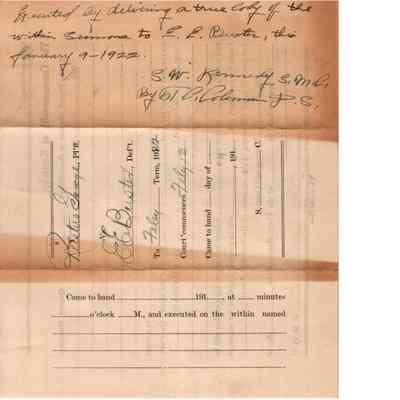 Executed by delivering a true Copy of the
within Summons to E. E. Buster, this
January 9-1922.
S. W. Kennedy S. M. C.
By Coleman D. S.
George, Pl'ff.
vs
E E Buster, Def't.
To Feby Term, 1922
Court commences Feby
Came to hand day of
, 191
S. C.
Came to hand , 191 , at minutes
o'clock M., and executed on the within named